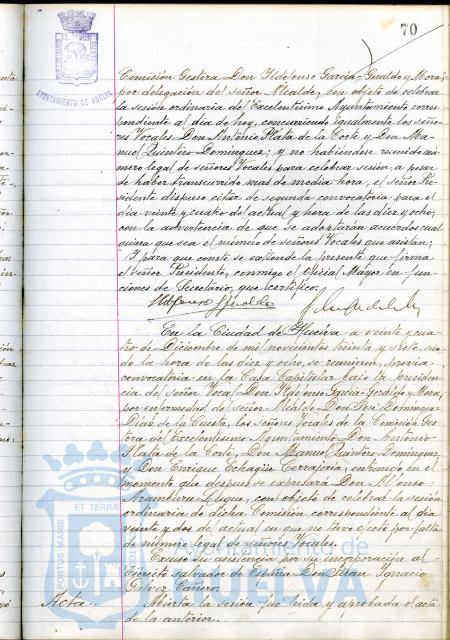 70
AYUNTAMIENTO DE HUELVA
Comisión Gestora Don Ildefonso García-Giraldo y Mora,
por delegación del señor Alcalde, con objeto de celebrar
la sesión ordinaria del Excelentísimo Ayuntamiento corres-
pondiente al día de hoy, concurriendo igualmente los seño-
res Vocales Don Antonio Plata de la Corte y Don Ma-
nuel Quintero Domínguez; y no habiéndose reunido nú-
mero legal de señores Vocales para celebrar sesión, a pesar
de haber transcurrido mas de media hora, el Señor Pre-
sidente dispuso citar de segunda convocatoria para el
día veinte y cuatro del actual y hora de las diez y ocho,
con la advertencia de que se adoptarán acuerdos cual
quiera que sea el número de señores Vocales que asistan;
Y para que conste se extiende la presente que firma
el señor Presidente, conmigo el Oficial Mayor en fun-
ciones de Secretario, que certifico.
En la Ciudad de Huelva a veinte y cua-
tro de Diciembre de mil novecientos treinta y siete, sien-
do la hora de las diez y ocho, se reunieron, previa
convocatoria en la Casa Capitular bajo la presiden-
cia del Señor Vocal Don Ildefonso García-Giraldo y Mora,
por enfermedad del Señor Alcalde Don José Domínguez
Díaz de la Cuesta, los Señores Vocales de la Comisión Ges-
tora del Excelentísimo Ayuntamiento Don Antonio
Plata de la Corte, Don Manuel Quintero Domínguez,
y Don Enrique Echagüe Cerrajería, entrando en el
momento que después se expresará Don Alfonso
Aramburu Luque, con objeto de celebrar la sesión
ordinaria de dicha Comisión correspondiente al día
veinte y dos del actual en que no tuvo efecto por falta
de número legal de señores Vocales.
Excusó su asistencia por su incorporación al
Ejército salvador de España Don Juan Ignacio
Gálvez Cañero.
Acta.
Abierta la sesión fue leída y aprobada el acta
de la anterior.
PORTUS MARIS
ET TERRAE
Ayuntamiento de
HUELVA